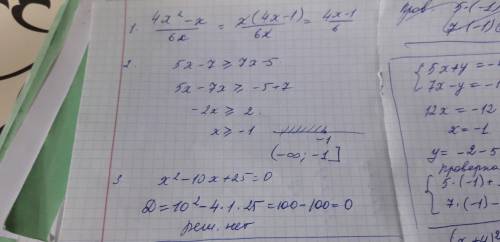 1. (4x²-x)/6x = x(4x-1)/6x = (4x-1)/6
2. 5x-7 ≥ 7x-5
5x-7x ≥ -5+7
-2x ≥ 2
x ≥ -1
-1
(-∞; -1]
3 x²-10x+25=0
D=10²-4·1·25=100-100=0
реш. нет
{5x+y=-
7x-y=-1
12x=-12
x=-1
y=-2-5
проверка
{5·(-1)+
7·(-1)-
(x+4)²
Пров
5·(-1)
7·(-1)